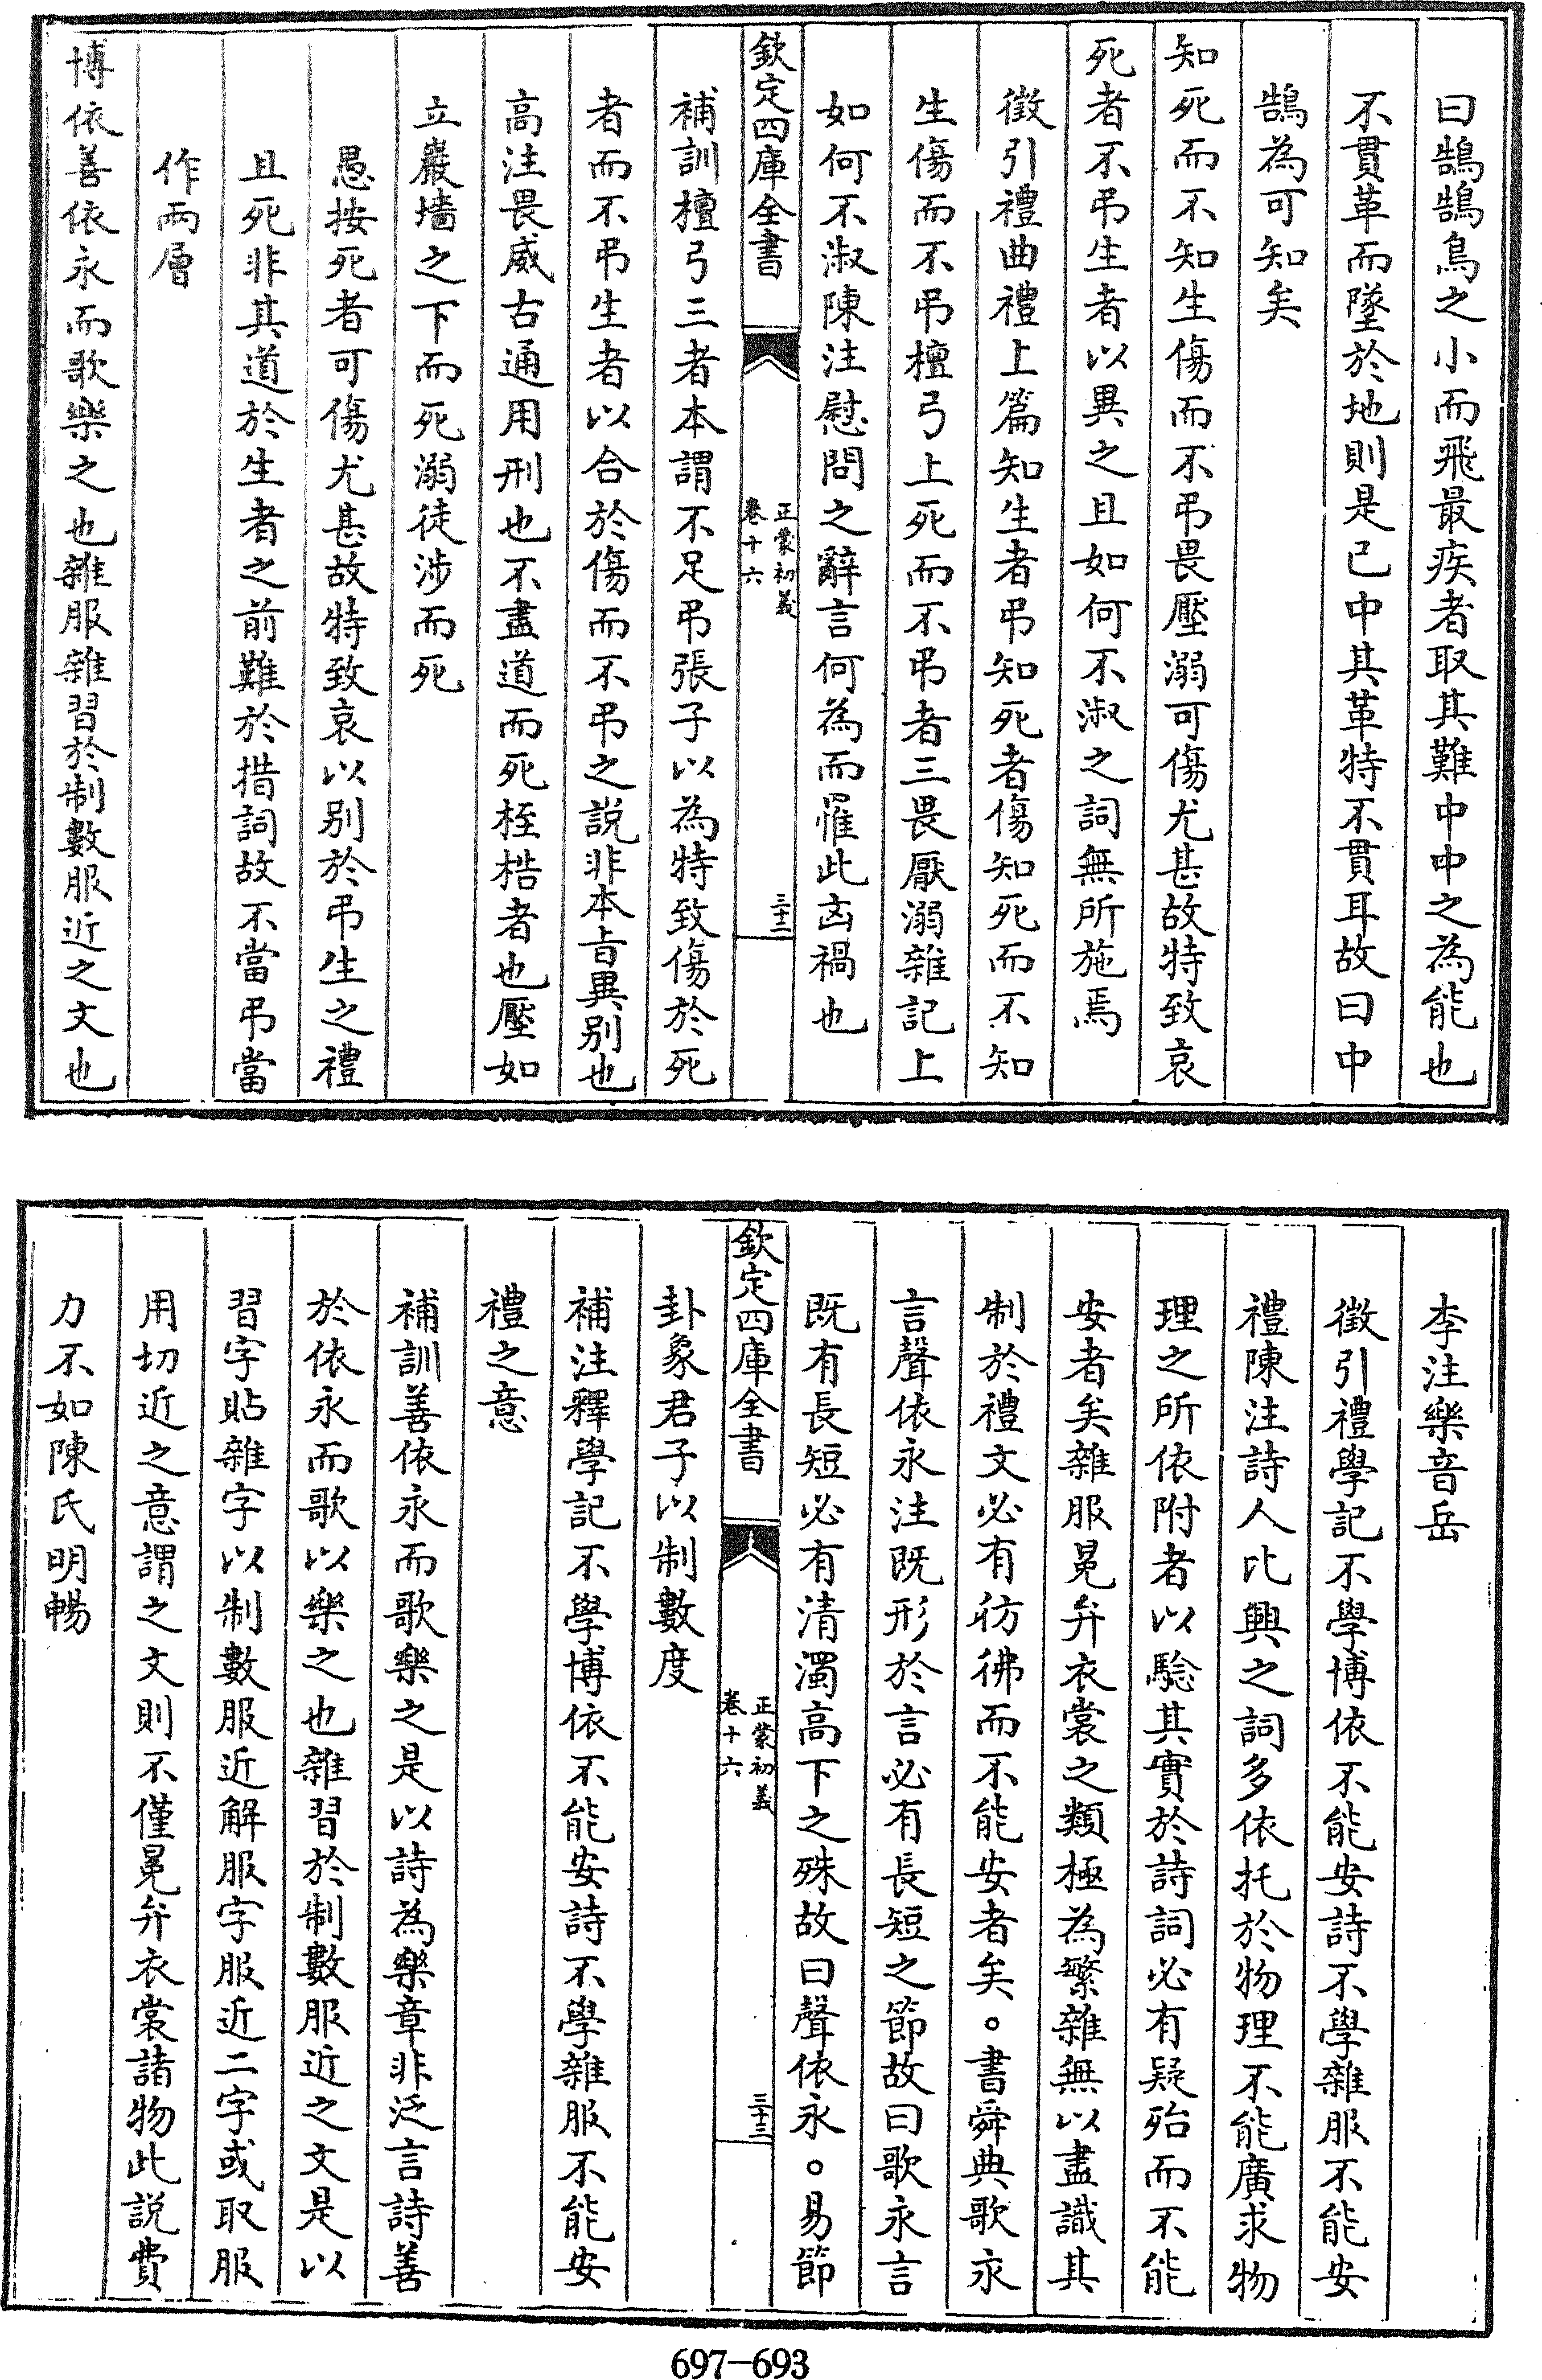 曰鵠鵠鳥之小而飛最疾者取其難中中之為能也
不貫革而墜於地則是已中其革特不貫耳故曰中
鵠為可知矣
知死而不知生傷而不弔畏壓溺可傷尤甚故特致哀
死者不弔生者以異之且如何不淑之詞無所施焉
徵引禮曲禮上篇知生者弔知死者傷知死而不知
生傷而不弔檀弓上死而不弔者三畏厭溺雜記上
如何不淑陳注慰問之辭言何為而罹此凶禍也
欽定四庫全書
正蒙初義
卷十六
三十二
補訓檀弓三者本謂不足弔張子以為特致傷於死
者而不弔生者以合於傷而不弔之説非本旨異别也
高注畏威古通用刑也不盡道而死桎梏者也壓如
立巖墻之下而死溺徒涉而死
愚按死者可傷尤甚故特致哀以别於弔生之禮
且死非其道於生者之前難於措詞故不當弔當
作兩層
博依善依永而歌樂之也雜服雜習於制數服近之文也
李注樂音岳
徵引禮學記不學博依不能安詩不學雜服不能安
禮陳注詩人比興之詞多依托於物理不能廣求物
理之所依附者以驗其實於詩詞必有疑殆而不能
安者矣雜服冕弁衣裳之類極為繁雜無以盡識其
制於禮文必有彷彿而不能安者矣。書舜典歌永
言聲依永注既形於言必有長短之節故曰歌永言
既有長短必有清濁高下之殊故曰聲依永。易節
欽定四庫全書
正蒙初義
卷十六
三十三
卦象君子以制數度
補注釋學記不學博依不能安詩不學雜服不能安
禮之意
補訓善依永而歌樂之是以詩為樂章非泛言詩善
於依永而歌以樂之也雜習於制數服近之文是以
習字貼雜字以制數服近解服字服近二字或取服
用切近之意謂之文則不僅冕弁衣裳諸物此説費
力不如陳氏明暢
697-693